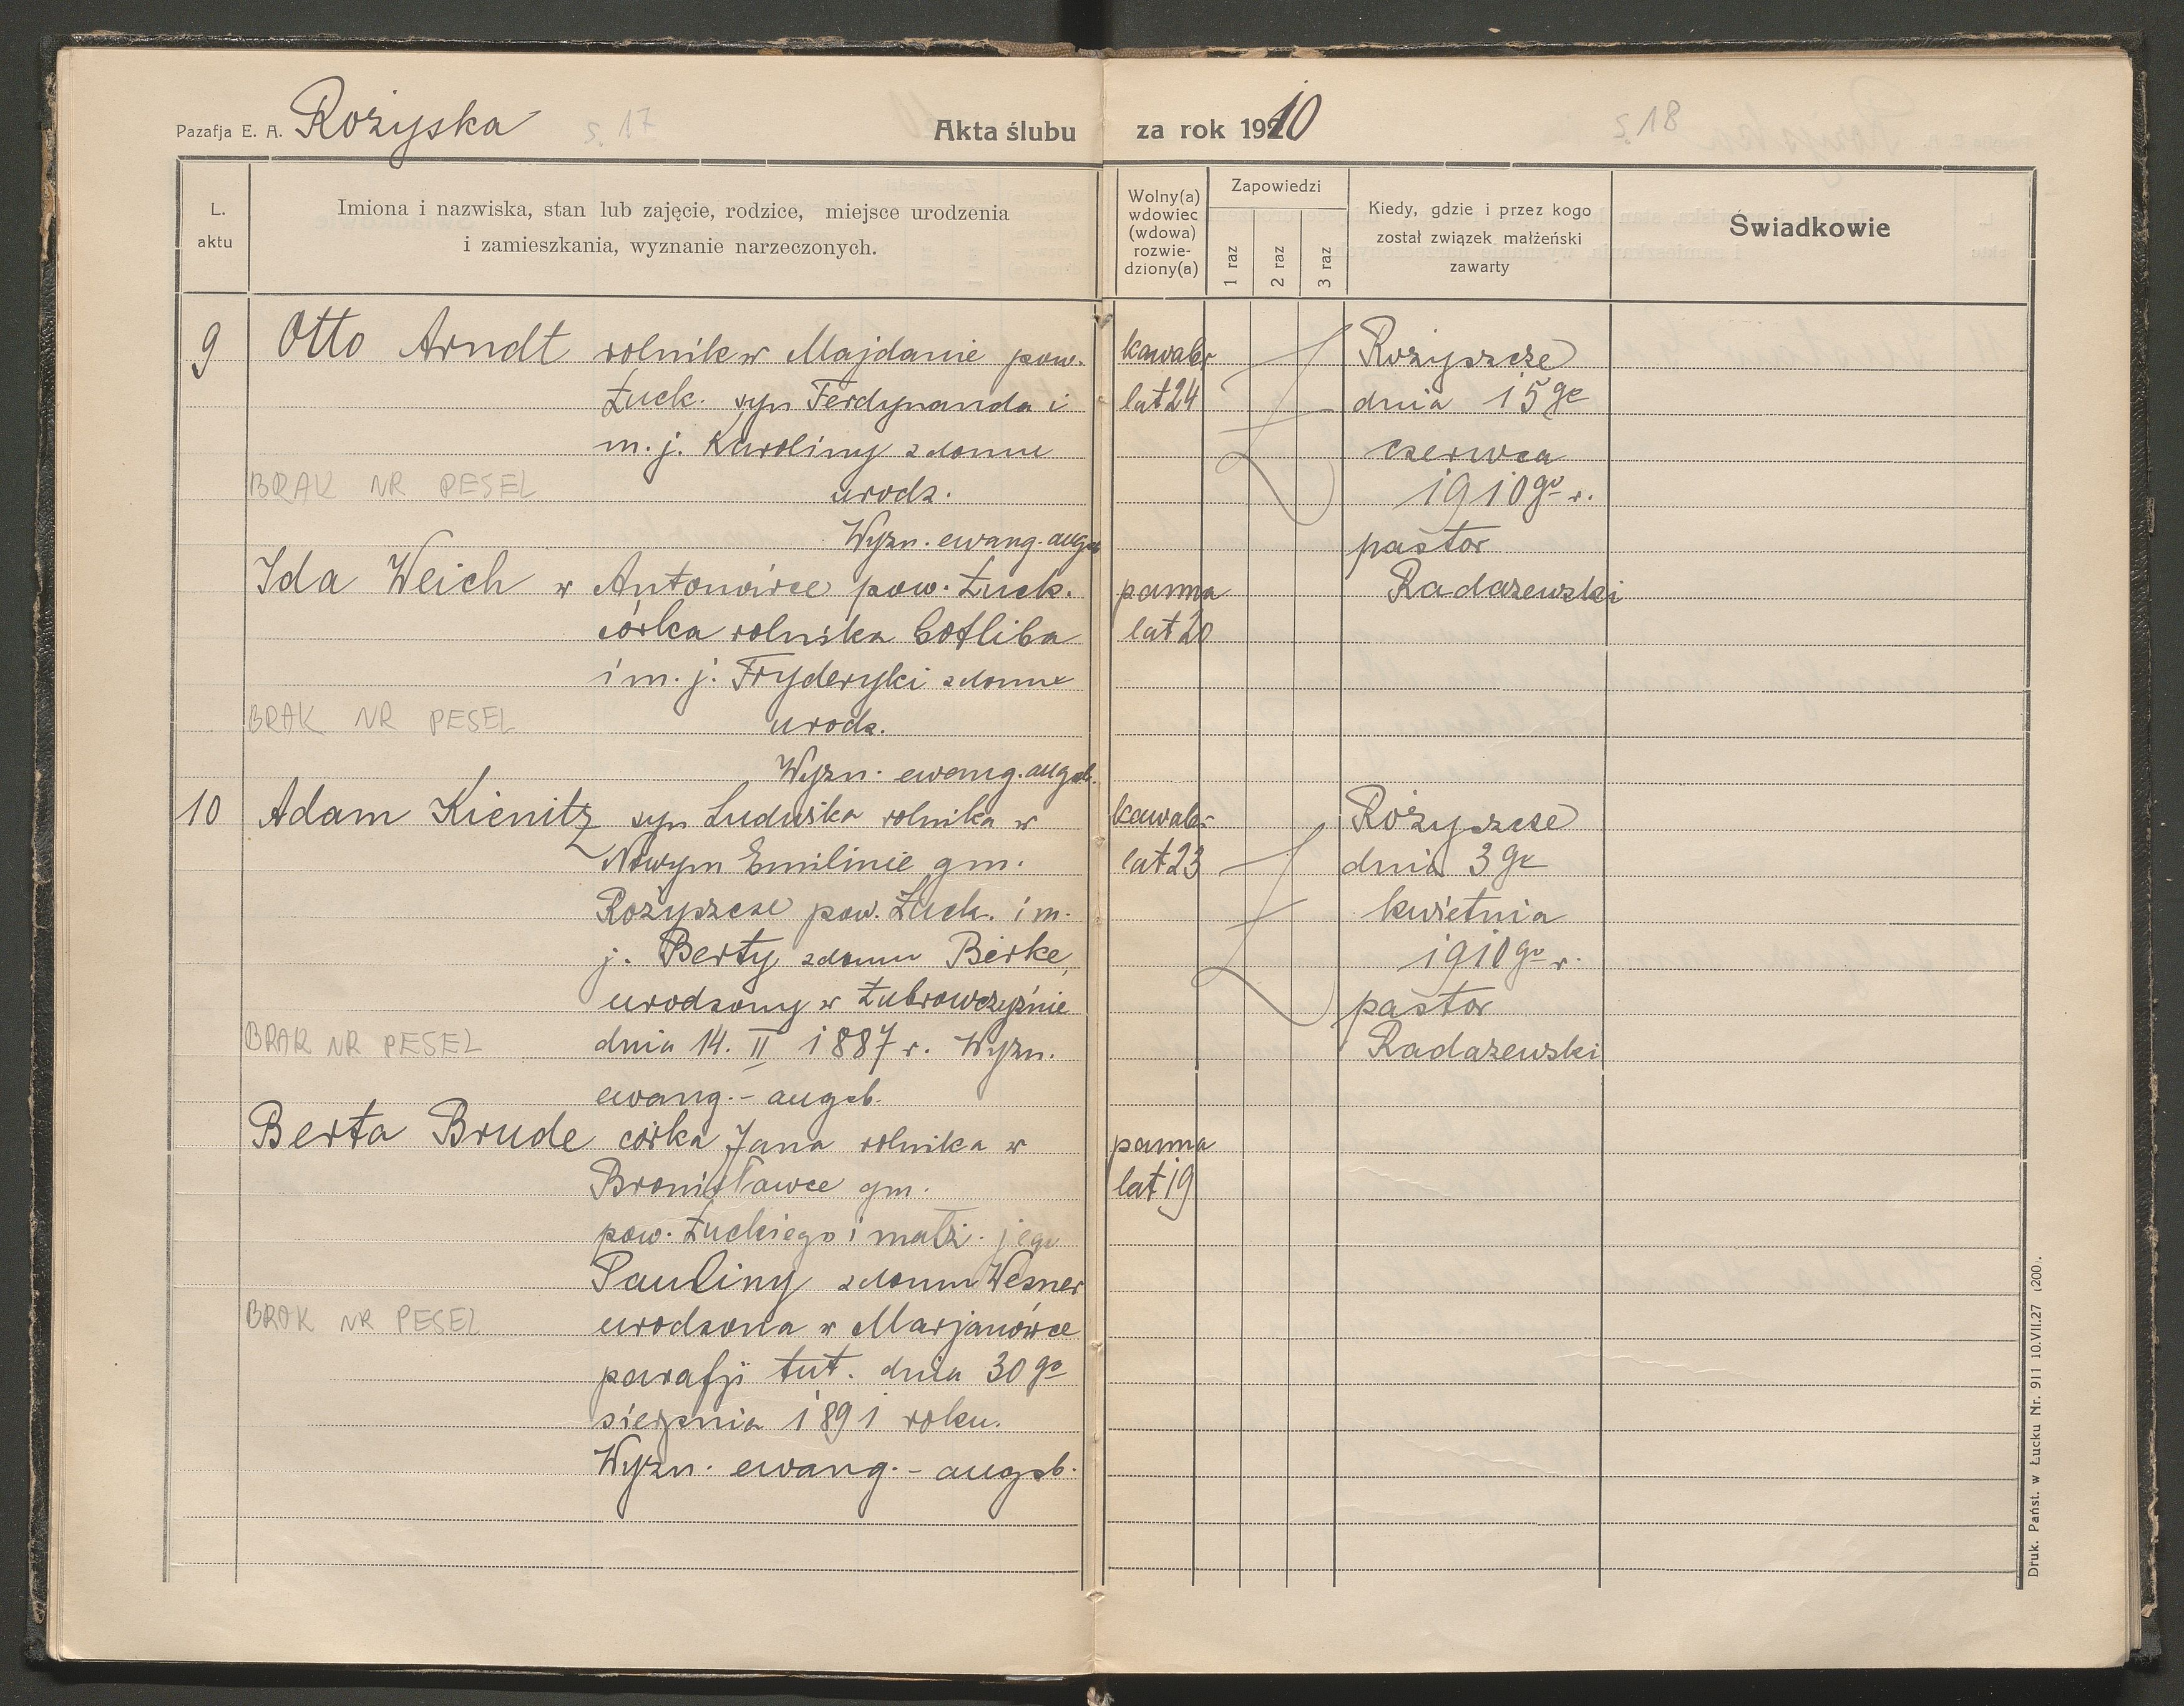 Pazafja E. A. Rożyska s. 17 Akta ślubu
L. aktu
Imiona i nazwiska, stan lub zajęcie, rodzice, miejsce urodzenia
i zamieszkania, wyznanie narzeczonych.
9 Otto Arndt rolnik w Majdanie pow.
Łuck. syn Ferdynanda i
m. j. Karoliny z domu
BRAK NR PESEL urodz.
Wyzn. ewang. augsb.
Ida Weich w Antonówce pow. Łuck.
córka rolnika Gotliba
i m. j. Fryderyki z domu
BRAK NR PESEL urodz.
Wyzn. ewang. augsb.
10 Adam Kienitz syn Ludwika rolnika w
Nowym Emilinie gm.
Rożyszcze pow. Łuck. i m.
j. Berty z domu Birke,
urodzony w Żubrowczyźnie
BRAK NR PESEL dnia 14. II 1887 r. Wyzn.
ewang.- augsb.
Berta Brude córka Jana rolnika w
Bronisławce gm.
pow. Łuckiego i małż. jego
Pauliny z domu Wesner
BRAK NR PESEL urodzona w Marjanówce
parafji tut. dnia 30go
sierpnia 1891 roku.
Wyzn. ewang.- augsb.
za rok 19210 s. 18
Wolny(a)
wdowiec
(wdowa)
rozwie-
dziony(a)
Zapowiedzi
1 raz
2 raz
3 raz
Kiedy, gdzie i przez kogo
został związek małżeński
zawarty
Świadkowie
kawaler Rożyszcze
lat 24 dnia 15go
czerwca
1910go r.
pastor
panna Radaszewski
lat 20
kawaler Rożyszcze
lat 23 dnia 3go
kwietnia
1910go r.
pastor
Radaszewski
panna
lat 19
Druk. Państ. w Łucku Nr. 911 10.VII.27 1200.